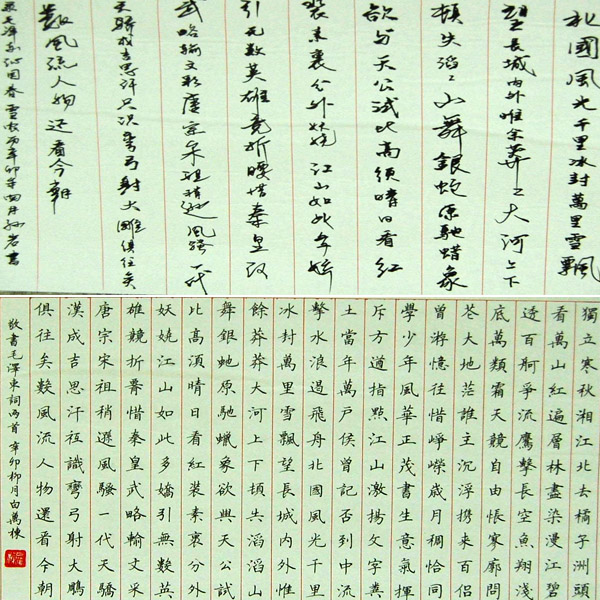 北國風光千里冰封萬里雪飄
望長城內外惟余莽々大河上下
頓失滔々山舞銀蛇原馳蜡象
欲与天公試比高須晴日看紅
裝素裹分外妖嬈江山如此多嬌
引无數英雄竟折腰惜秦皇漢
武略輸文彩唐宗宋祖稍遜風騷一代
天驕成吉思汗只识彎弓射大雕俱往矣
數風流人物还看今朝
毛澤東沁园春雪
獨立寒秋湘江北去橘子洲頭
看萬山紅遍層林盡染漫江碧
透百舸爭流鷹擊長空魚翔淺
底萬類霜天競自由悵寥廓問
蒼大地茫誰主沉浮携來百侶
曾游憶往惜崢嶸歲月稠恰同
學少年風華正茂書生意氣揮
斥方遒指點江山激揚文字糞
土當年萬戶侯曾記否到中流
擊水浪遏飛舟北國風光千里
冰封萬里雪飄望長城內外惟
餘莽莽大河上下頓失滔滔山
舞銀虵原馳蠟象欲與天公試
比高須晴日看紅裝素裹分外
妖嬈江山如此多嬌引無數英
雄競折腰惜秦皇武略輸文采
唐宗宋祖稍遜風騷一代天驕
漢成吉思汗衹識彎弓射大鵰
俱往矣數風流人物還看今朝
敬書毛澤東詞两首辛卯柳月白萬棟